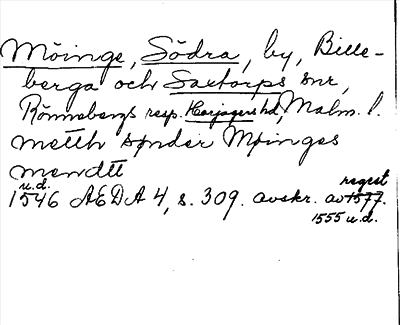 Möinge, Södra, by, Bille-
berga och Saxtorps snr,
Rönnebergs resp. Harjagers hd, Malm. l.
metth synder Møinges
mendtt
u.d. regest
1546 AEDA 4, s. 309. avskr. av 1577.
1555 u.d.